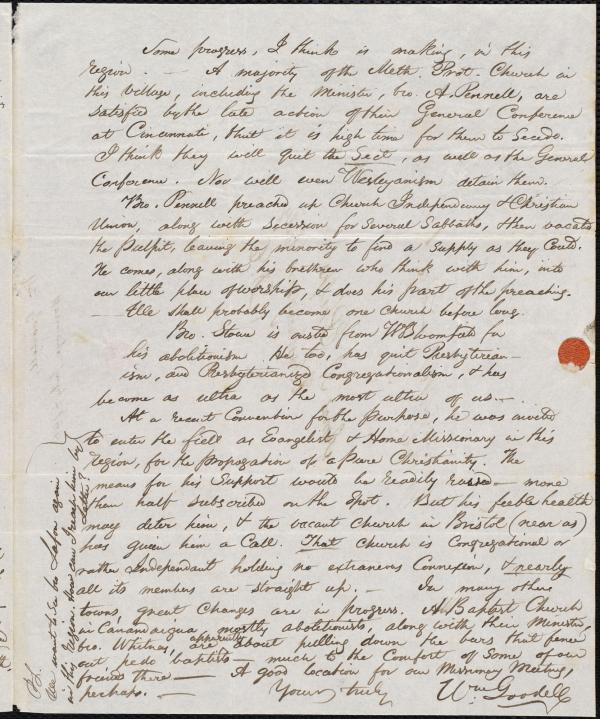 Some progress, I think is making, in this
region. — A majority of the Meth. Prot. Church in
this village, including the Minister, bro. A. Pennell, are
satisfied by the late action of their General Conference
at Cincinnati, that it is high time for them to Secede.
I think they will quit the Sect, as well as the General
Conference. Nor will even Wesleyanism detain them.
Bro. Pennell preached up Church Independency & Christian
Union, along with Secession for several Sabbaths, & then vacated
the Pulpit, leaving the minority to find a supply as they could.
He comes, along with his brethren who think with him, into
our little place of worship, & does his part of the preaching.
— We shall probably become one church before long.
Bro. Stowe is ousted from W Bloomfield for
his abolitionism. He too, has quit Presbyterian-
ism, and Presbyterianized Congregationalism, & has
become as ultra as the most ultra of us. —
At a recent Convention for the purpose, he was invited
to enter the field as Evangelist & Home Missionary in this
region, for the propagation of a Pure Christianity. The
means for his Support would be readily raised — more
than half subscribed on the spot. But his feeble health
may deter him, & the vacant church in Bristol (near us)
has given him a Call. That church is Congregational or
rather Independant holding no extraneous Connexion, & nearly
all its members are straight up. — In many other
towns, great changes are in progress. A Baptist Church
in Canandaigua, mostly abolitionists, along with their Minister,
bro. Whitney, are apparently about pulling down the bars that fence
out pedo baptists — much to the Comfort of some of our
friends there — A good location for our Missionary Meeting,
perhaps. — Yours truly Wm Goodell
P.S. We want to see bro Lafon again
in this Region. How can I reach him by
Letter?